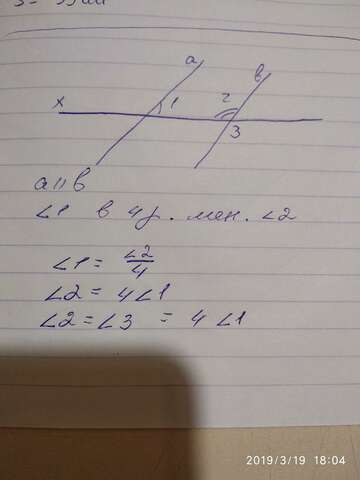 a
в
x
1
2
3
a || в
∠1 в 4 р. мен. ∠2
∠1 = ∠2/4
∠2 = 4∠1
∠2 = ∠3 = 4∠1
2019/3/19 18:04